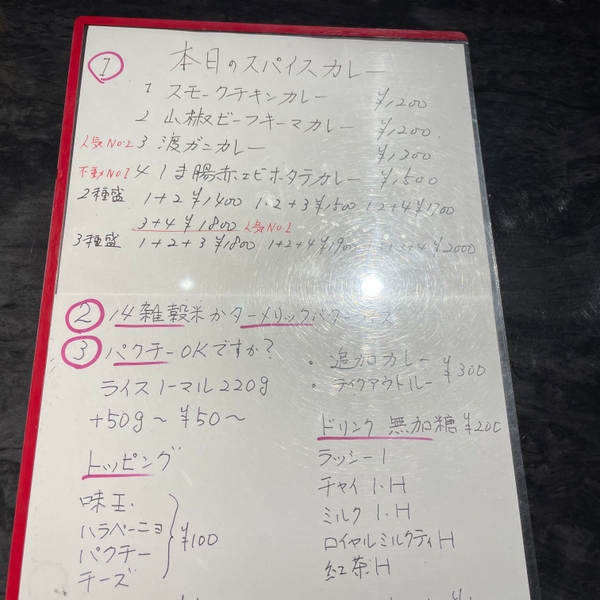 1 本日のスパイスカレー
1 スモークチキンカレー ¥1,200
2 山椒ビーフキーマカレー ¥1,200
人気No.2 3 渡ガニカレー ¥1,300
不動No1 4 しま腸赤エビホタテカレー ¥1,500
2種盛 1+2 ¥1400 1・2+3 ¥1500 1・2+4 ¥1700
3+4 ¥1800 人気No1
3種盛 1+2+3 ¥1800 1+2+4 ¥1900 +3+4 ¥2000
2 14雑穀米かターメリックバターライス
3 パクチーOKですか?
・追加カレー
・テイクアウトルー ¥300
ライスノーマル220g
+50g〜 ¥50〜
ドリンク 無加糖 ¥200
トッピング
ラッシー I
チャイ I・H
ミルク I・H
ロイヤルミルクティH
紅茶H
味玉
ハラペーニョ
パクチー
チーズ
¥100